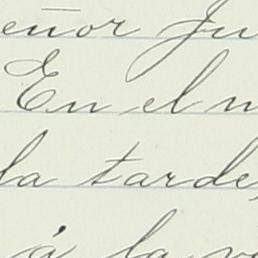 eñor Ju
En el m
la tarde,
á la ve